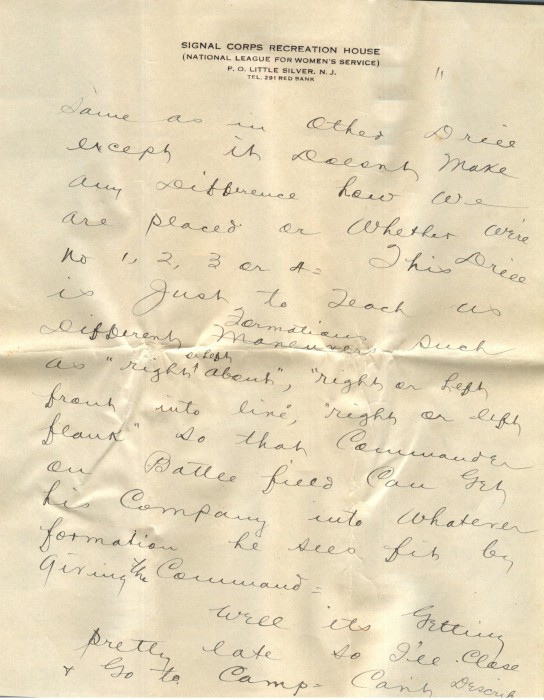 SIGNAL CORPS RECREATION HOUSE
(NATIONAL LEAGUE FOR WOMEN'S SERVICE)
P. O. LITTLE SILVER, N. J.
TEL. 291 RED BANK
"
Same as in Other Drill
except it Doesnt Make
any Difference how we
are placed or Whether We're
No 1, 2, 3 or 4= This Drill
is Just to Teach us
Formations
Different Maneuvers such
or left
as "right about", "right or Left
front into line", "right or left
flank" so that Commander
on Battle field Can Get
his Company into Whatever
formation he sees fit by
Giving the Command=
Well its Getting
pretty late so I'll Close
& Go to Camp- Can't Describe